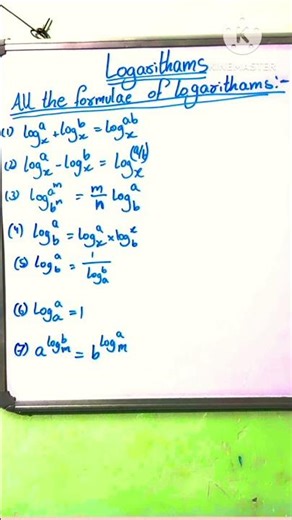 K
KINEMASTER
Logarithams
All the formulae of logarithams:-
(1) log_x^a + log_x^b = log_x^ab
(2) log_x^a - log_x^b = log_x^(a/b)
(3) log_{b^n}^{a^m} = m/n log_b^a
(4) log_b^a = log_x^a × log_b^x
(5) log_b^a = 1/log_a^b
(6) Log_a^a = 1
(7) a^{log_m^b} = b^{log_m^a}